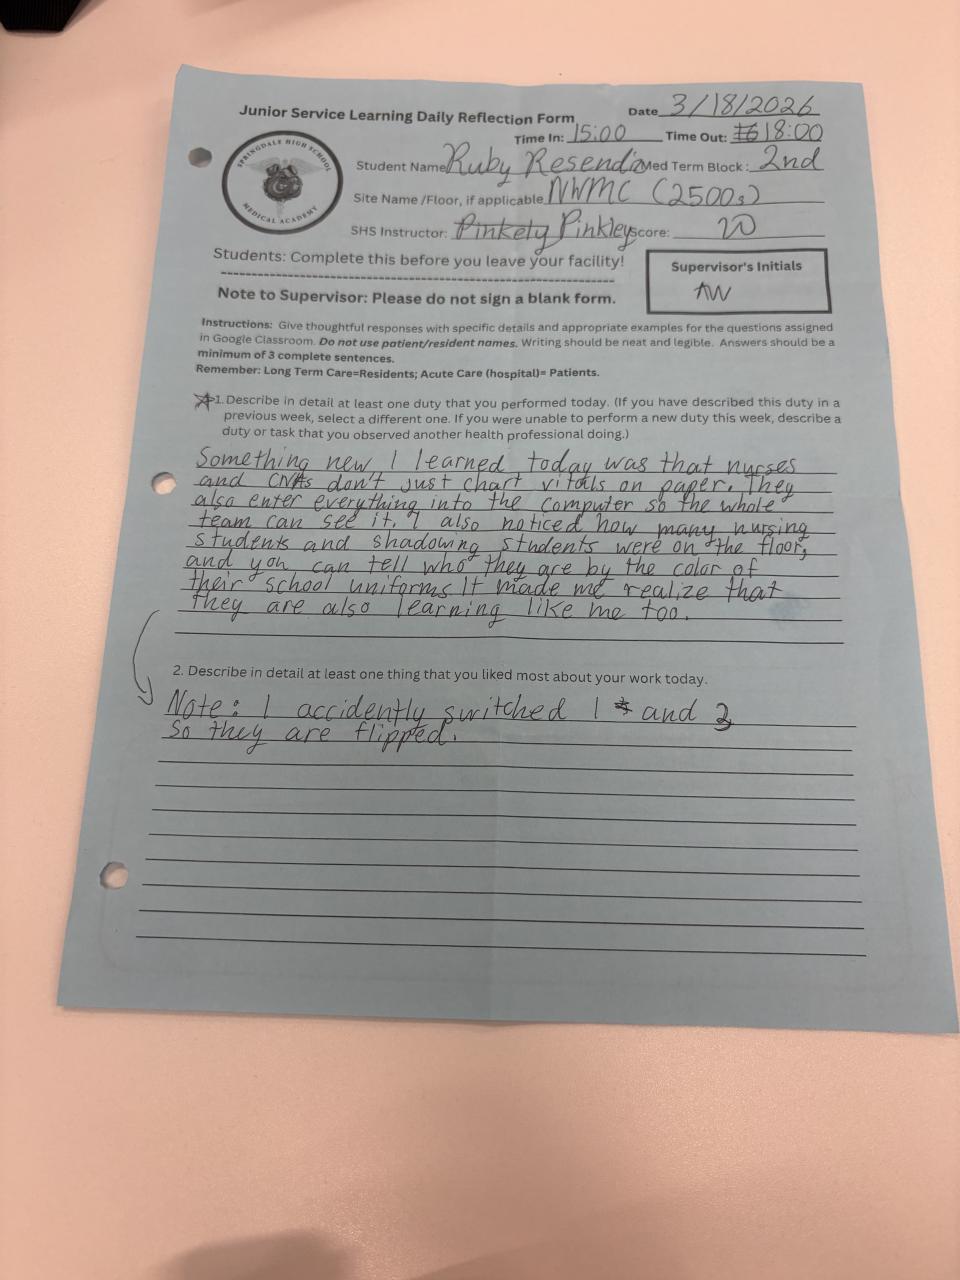 Junior Service Learning Daily Reflection Form Date 3/18/2026
Time In: 15:00 Time Out: 18:00
SPRINGDALE HIGH SCHOOL
MEDICAL ACADEMY
Student Name Ruby Resendiz Med Term Block: 2nd
Site Name /Floor, if applicable NWMC (2500s)
SHS Instructor: Pinkety Pinkley Score: 20
Students: Complete this before you leave your facility!
Supervisor's Initials
AW
Note to Supervisor: Please do not sign a blank form.
Instructions: Give thoughtful responses with specific details and appropriate examples for the questions assigned
in Google Classroom. Do not use patient/resident names. Writing should be neat and legible. Answers should be a
minimum of 3 complete sentences.
Remember: Long Term Care=Residents; Acute Care (hospital)= Patients.
1. Describe in detail at least one duty that you performed today. (If you have described this duty in a
previous week, select a different one. If you were unable to perform a new duty this week, describe a
duty or task that you observed another health professional doing.)
Something new I learned today was that nurses
and CNAs don't just chart vitals on paper. They
also enter everything into the computer so the whole
team can see it. I also noticed how many nursing
students and shadowing students were on the floor,
and you can tell who they are by the color of
their school uniforms It made me realize that
they are also learning like me too.
2. Describe in detail at least one thing that you liked most about your work today.
Note: I accidently switched 1 and 3
so they are flipped.